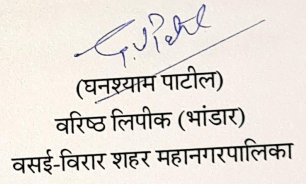 G.V.Patil
(घनश्याम पाटील)
वरिष्ठ लिपीक (भांडार)
वसई-विरार शहर महानगरपालिका